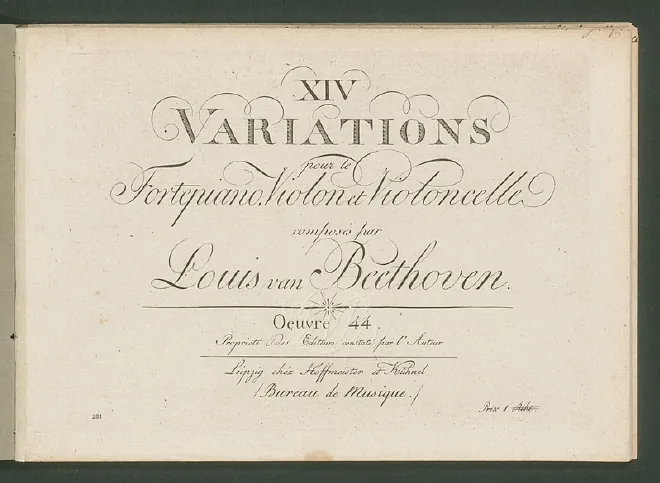 XIV
VARIATIONS
pour le
Fortepiano, Violon et Violoncelle
composés par
Louis van Beethoven.
Oeuvre 44.
Proprieté des Editeurs constaté par l'Auteur
Leipzig chéz Hoffmeister et Kühnel
(Bureau de Musique.)
281
Prix 1